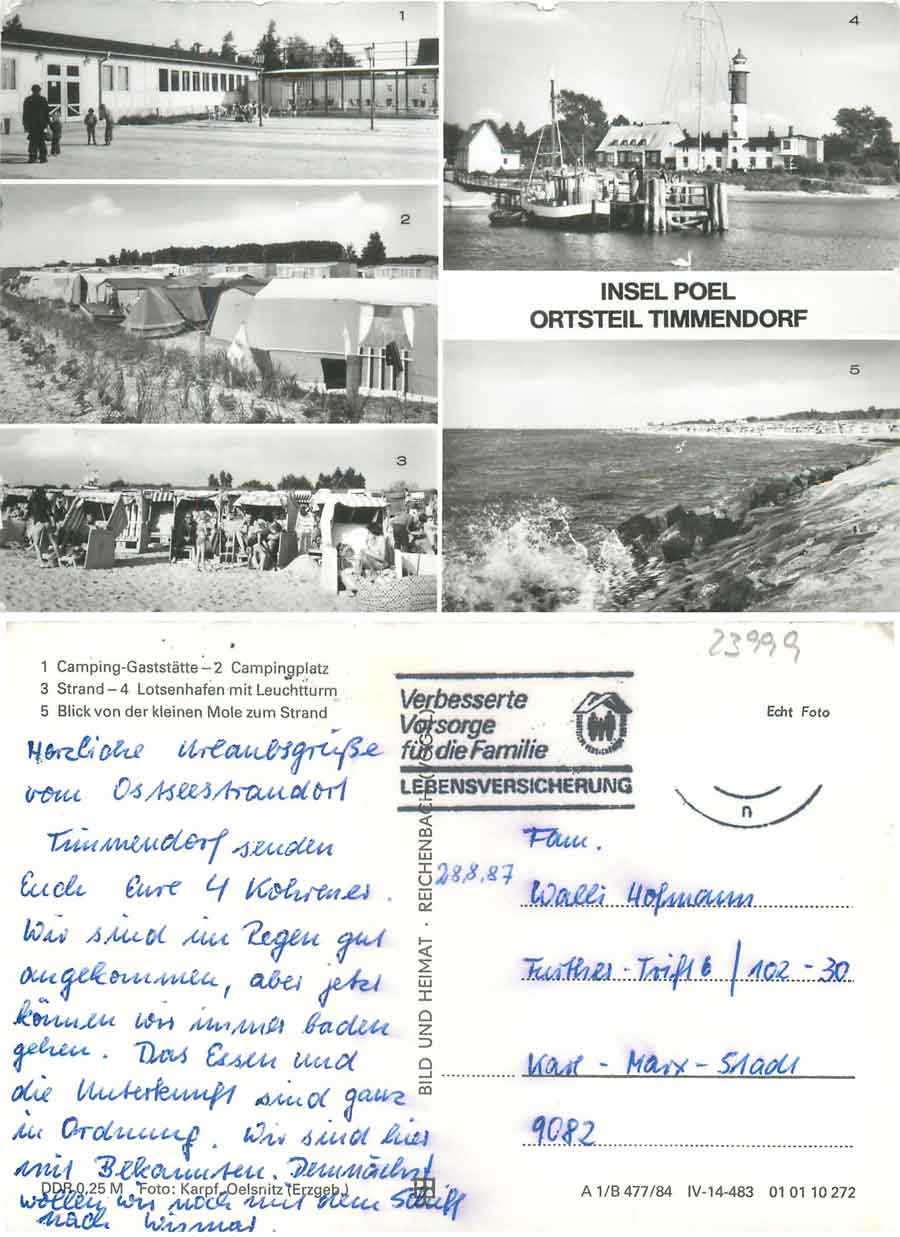 1
2
3
4
INSEL POEL
ORTSTEIL TIMMENDORF
5
23999
1 Camping-Gaststätte – 2 Campingplatz
3 Strand – 4 Lotsenhafen mit Leuchtturm
5 Blick von der kleinen Mole zum Strand
Herzliche Urlaubsgrüße
vom Ostseestrandort
Timmendorf senden
Euch Eure 4 Kohrener.
Wir sind im Regen gut
angekommen, aber jetzt
können wir immer baden
gehen. Das Essen und
die Unterkunft sind ganz
in Ordnung. Wir sind hier
mit Bekannten. Demnächst
wollen wir noch mit dem Schiff
nach Wismar.
DDR 0,25 M Foto: Karpf, Oelsnitz (Erzgeb.)
BILD UND HEIMAT · REICHENBACH (VOGTL)
Verbesserte
Vorsorge
für die Familie
LEBENSVERSICHERUNG
Echt Foto
n
28.8.87
Fam.
Walli Hofmann
Further-Trift 6 / 102-30
Karl-Marx-Stadt
9082
A 1/B 477/84 IV-14-483 01 01 10 272